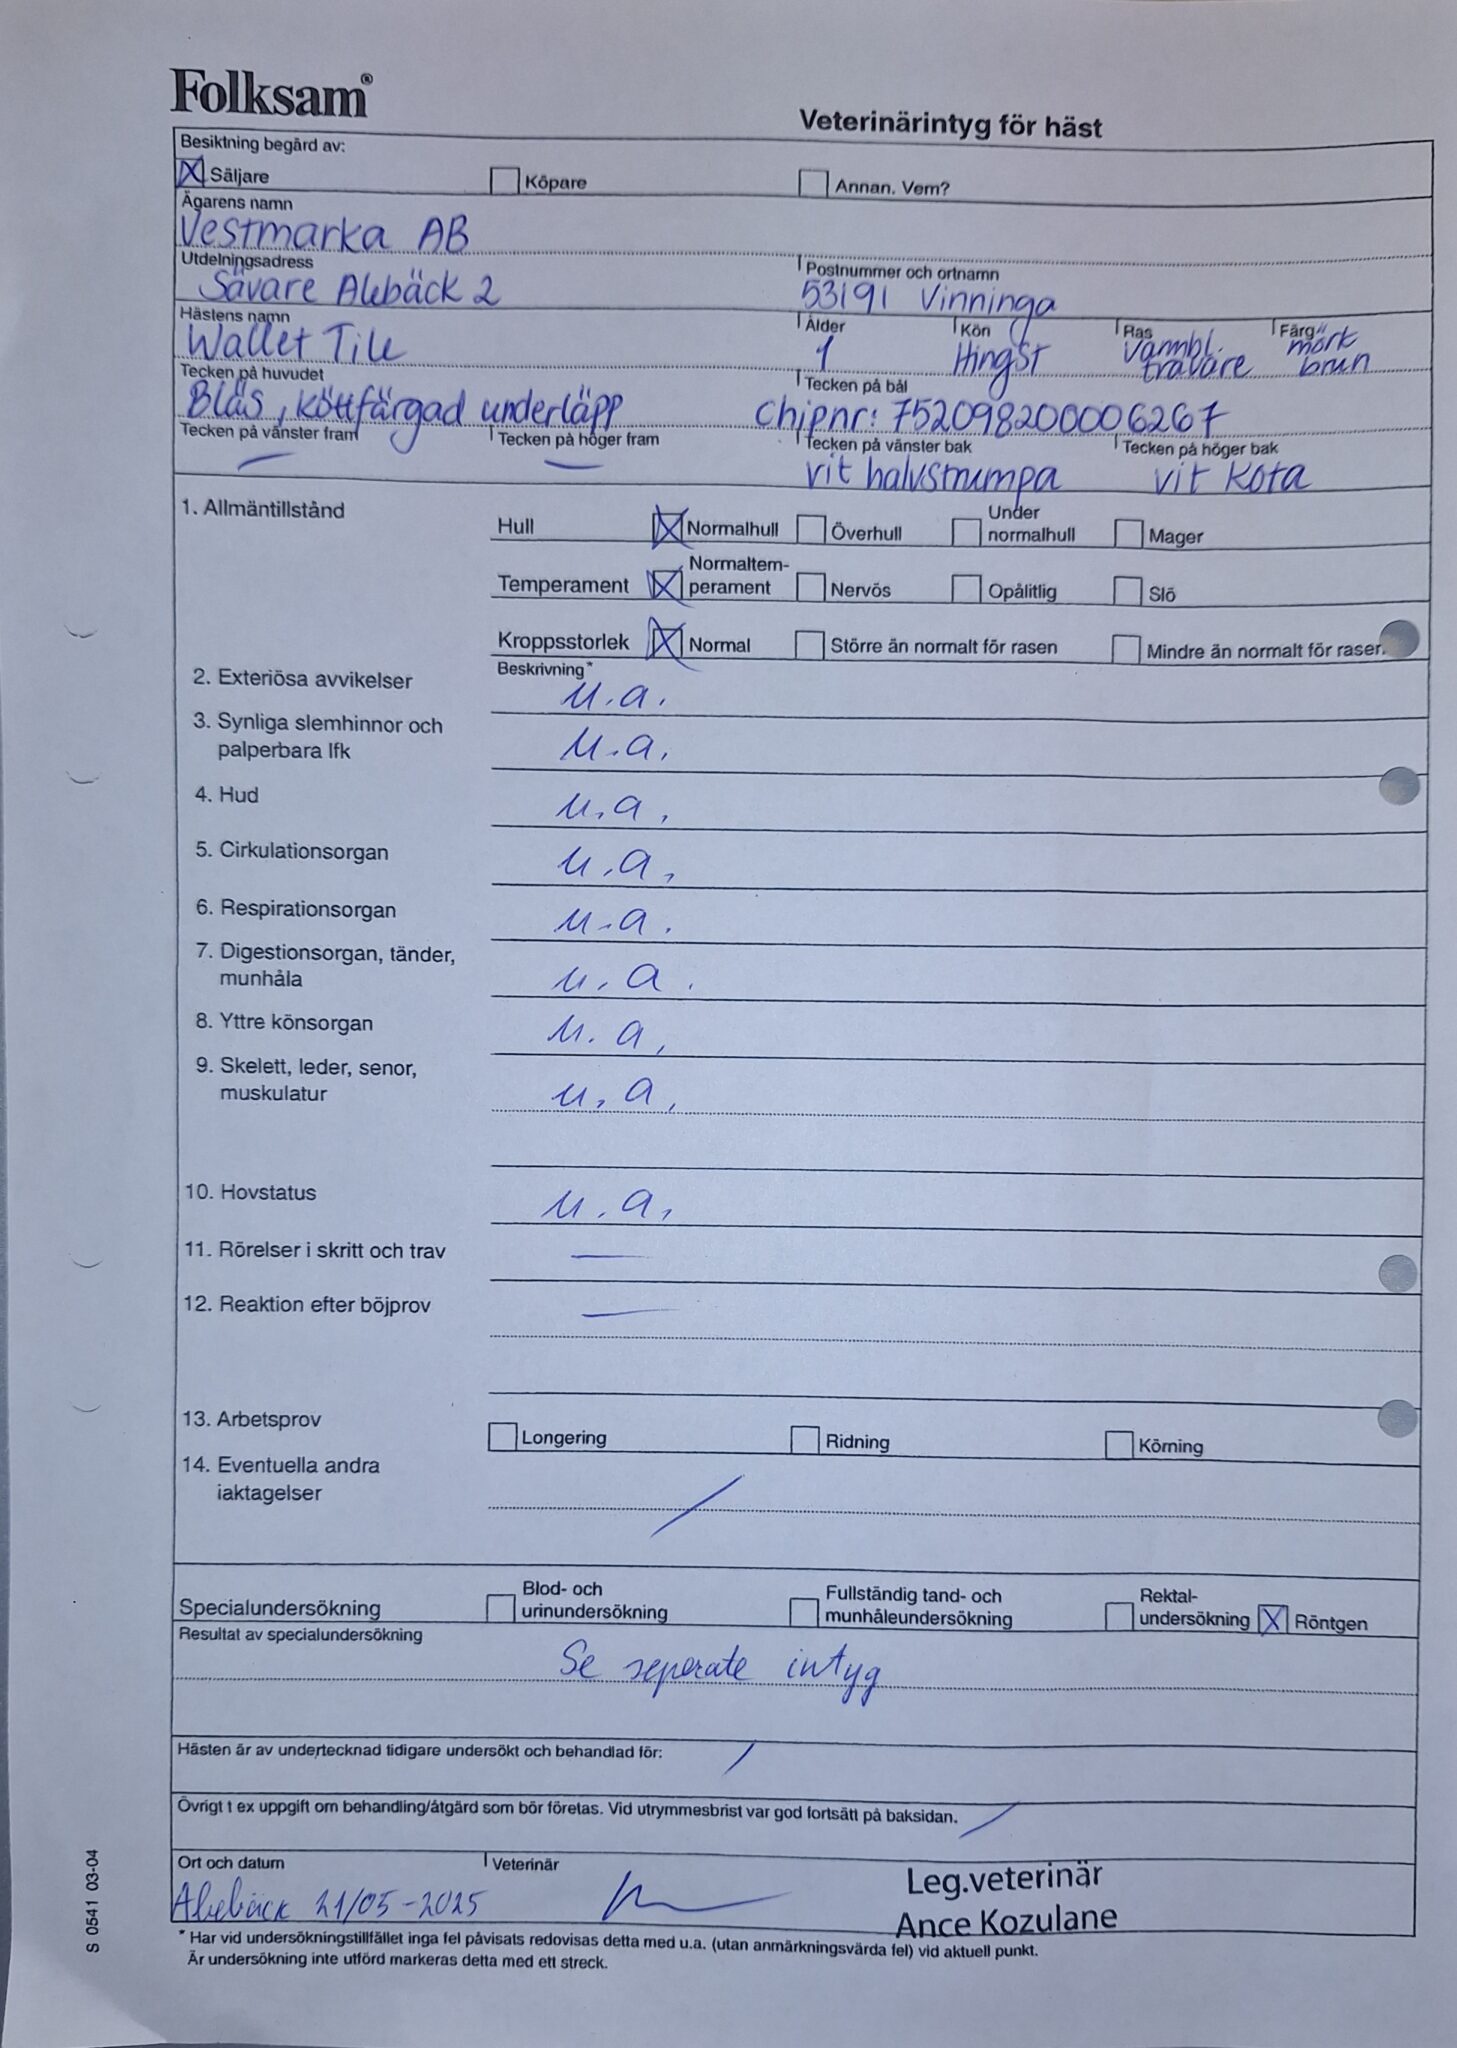 Folksam®
Veterinärintyg för häst
Besiktning begärd av:
X Säljare Köpare Annan. Vem?
Ägarens namn
Vestmarka AB
Utdelningsadress Postnummer och ortnamn
Sävare Alebäck 2 53191 Vinninga
Hästens namn Ålder Kön Ras Färg
Wallet Tile 1 Hingst Varmbl. travare mörk brun
Tecken på huvudet Tecken på bål
Bläs, köttfärgad underläpp Chipnr: 752098200006267
Tecken på vänster fram Tecken på höger fram Tecken på vänster bak Tecken på höger bak
— — vit halvstrumpa vit kota
1. Allmäntillstånd
Hull X Normalhull Överhull Under normalhull Mager
Temperament X Normaltem-perament Nervös Opålitlig Slö
Kroppsstorlek X Normal Större än normalt för rasen Mindre än normalt för rasen
Beskrivning*
2. Exteriösa avvikelser u.a.
3. Synliga slemhinnor och
palperbara lfk u.a.
4. Hud u.a.
5. Cirkulationsorgan u.a.
6. Respirationsorgan u.a.
7. Digestionsorgan, tänder,
munhåla u.a.
8. Yttre könsorgan u.a.
9. Skelett, leder, senor,
muskulatur u.a.
10. Hovstatus u.a.
11. Rörelser i skritt och trav —
12. Reaktion efter böjprov —
13. Arbetsprov Longering Ridning Körning
14. Eventuella andra
iaktagelser /
Specialundersökning Blod- och urinundersökning Fullständig tand- och munhåleundersökning Rektal-undersökning X Röntgen
Resultat av specialundersökning
Se seperate intyg
Hästen är av undertecknad tidigare undersökt och behandlad för: /
Övrigt t ex uppgift om behandling/åtgärd som bör företas. Vid utrymmesbrist var god fortsätt på baksidan. /
Ort och datum Veterinär
Alebäck 21/05-2025
Leg.veterinär
Ance Kozulane
* Har vid undersökningstillfället inga fel påvisats redovisas detta med u.a. (utan anmärkningsvärda fel) vid aktuell punkt.
Är undersökning inte utförd markeras detta med ett streck.
S 0541 03-04